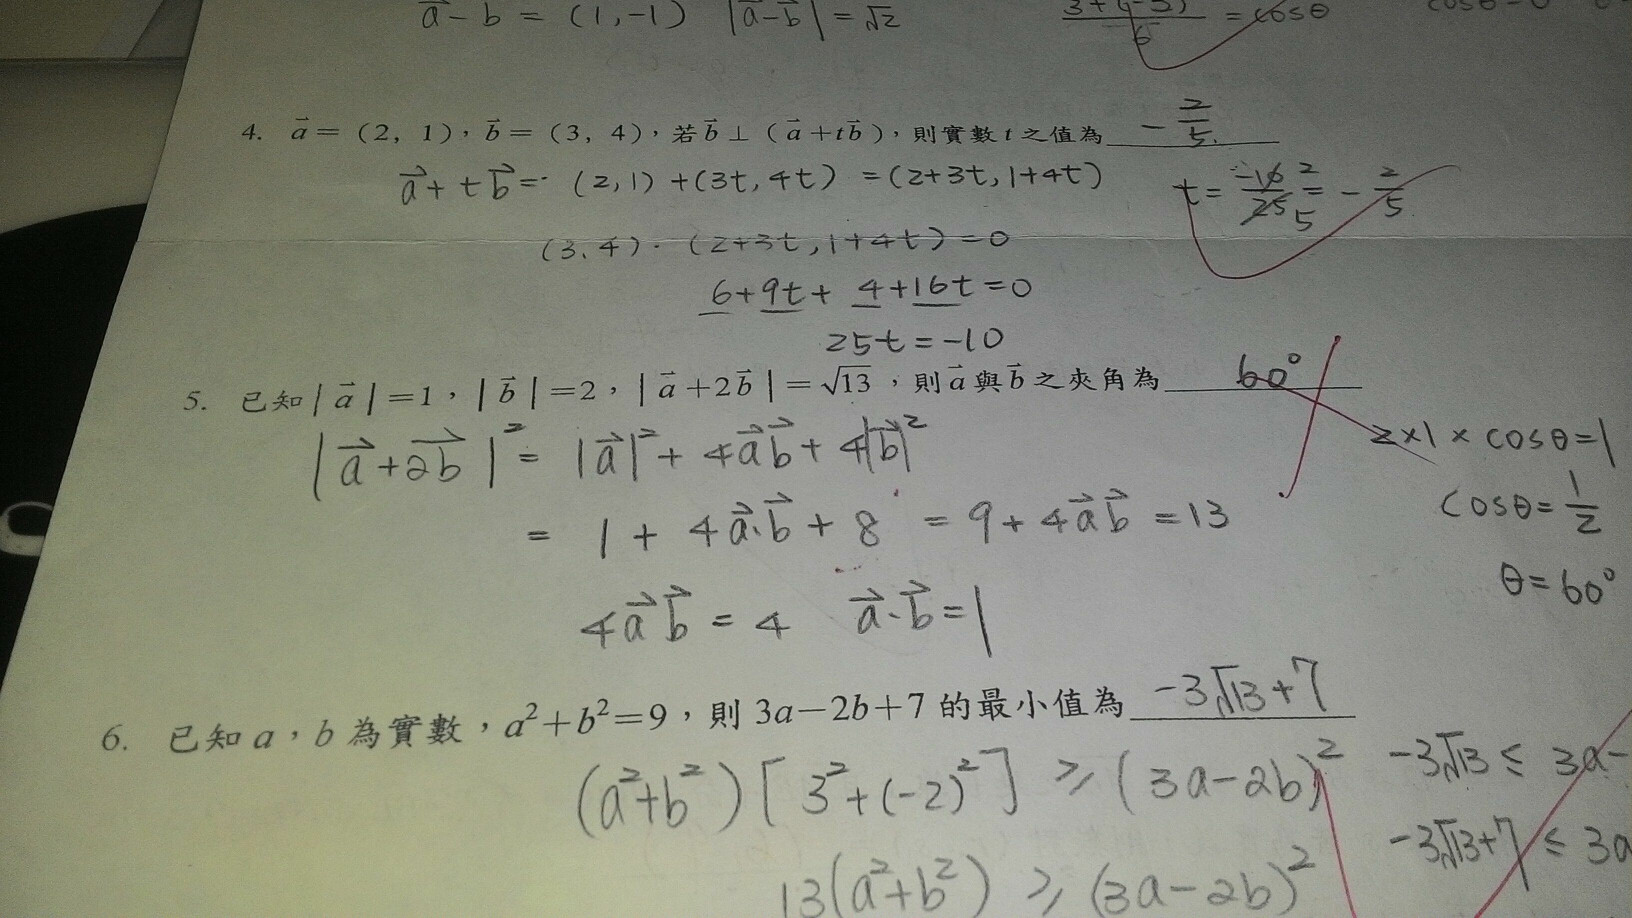 a⃗ - b = (1, -1) |a⃗-b⃗| = √2
= cosθ
4. a⃗ = (2, 1), b⃗ = (3, 4), 若 b⃗ ⊥ (a⃗ + tb⃗), 則實數 t 之值為 -2/5
a⃗ + t b⃗ = (2,1) + (3t, 4t) = (2+3t, 1+4t)
t = -10/25 2/5 = -2/5
(3, 4) · (2+3t, 1+4t) = 0
6+9t+ 4+16t=0
25t = -10
5. 已知 |a⃗|=1, |b⃗|=2, |a⃗+2b⃗|=√13, 則 a⃗ 與 b⃗ 之夾角為 60°
|a⃗+2b⃗|² = |a⃗|² + 4a⃗b⃗ + 4|b⃗|²
2×1×cosθ=1
= 1 + 4a⃗·b⃗ + 8 = 9 + 4a⃗b⃗ = 13
cosθ = 1/2
4a⃗b⃗ = 4 a⃗·b⃗ = 1
θ = 60°
6. 已知 a, b 為實數, a²+b²=9, 則 3a-2b+7 的最小值為 -3√13+7
(a²+b²)[3²+(-2)²] ≥ (3a-2b)²
-3√13 ≤ 3a-
-3√13+7 ≤ 3a
13(a²+b²) ≥ (3a-2b)²